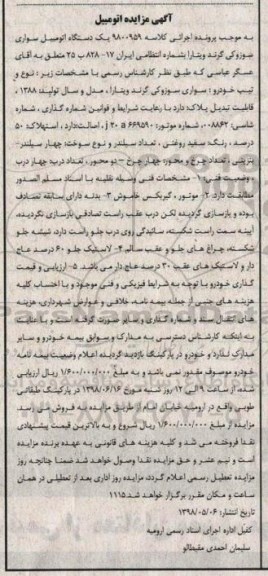 آگهی مزایده اتومبیل
به موجب پرونده اجرائی کلاسه ۹۸۰۰۹۵۹ یک دستگاه اتومبیل سواری
سوزوکی گرند ویتارا بشماره انتظامی ایران ۱۷-۸۲۸ ب ۲۵ متعلق به آقای
عسگر عباسی که طبق نظر کارشناس رسمی با مشخصات زیر: نوع و
تیپ خودرو: سواری سوزوکی گرند ویتارا، مدل و سال تولید ۱۳۸۸،
قابلیت تبدیل پلاک: دارد با رعایت شرایط و قوانین شماره گذاری، شماره
شاسی: ۰۰۸۸۶۲، شماره موتور: ۶۶۹۵۹۰ j ۲۰ a، اصالت: دارد، استهلاک: ۵۰
درصد، رنگ: سفید روغنی، تعداد سیلندر و نوع سوخت: چهار سیلندر-
بنزینی، تعداد چرخ و محور: چهار چرخ - دو محور، تعداد درب: چهار درب
، وضعیت فنی: ۱- مشخصات فنی وسیله نقلیه با اسناد مسلم الصدور
مطابقت دارد ۲- موتور، گیربکس خاموش ۳- بدنه دارای سابقه تصادف
بوده و بازسازی گردیده لکن درب عقب راست تصادفی بازسازی نگردیده،
آیینه سمت راست شکسته، سائیدگی روی درب جلو راست دارد، شیشه جلو
شکسته، چراغ های جلو و عقب سالم ۴- لاستیک جلو ۶۰ درصد عاج
دار و لاستیک های عقب ۳۰ درصد عاج دار می باشد. ۵- ارزیابی و قیمت
گذاری خودرو با توجه به شرایط فیزیکی و فنی موجود و با احتساب کلیه
هزینه های جنبی از جمله بیمه نامه، خلافی و عوارض شهرداری، هزینه
های انتقال سند و شماره گذاری و سایر صورت گرفته است و با عنایت
به اینکه کارشناس دسترسی به مدارک و سوابق بیمه خودرو و سایر
مدارک ندارد و خودرو در پارکینگ بازدید گردیده اعلام وضعیت بیمه نامه
خودرو موصوف مقدور نمی باشد و به مبلغ ۱/۶۰۰/۰۰۰/۰۰۰ ریال ارزیابی
شده، از ساعت ۹ الی ۱۲ روز شنبه مورخ ۱۳۹۸/۰۶/۱۶ در پارکینگ طبقاتی
طوبی واقع در ارومیه خیابان امام از طریق مزایده به فروش می رسد.
مزایده از مبلغ ۱/۶۰۰/۰۰۰/۰۰۰ ریال شروع و به بالاترین قیمت پیشنهادی
نقدا فروخته می شد و کلیه هزینه های قانونی به عهده برنده مزایده
است و نیم عشر و حق مزایده نقدا وصول خواهد شد ضمنا چنانچه روز
مزایده تعطیل رسمی اعلام گردد، مزایده روز اداری بعد از تعطیلی در همان
ساعت و مکان مقرر برگزار خواهد شد ۱۱۱۵
تاریخ انتشار: ۱۳۹۸/۰۵/۰۶
کفیل اداره اجرای اسناد رسمی ارومیه
سلیمان احمدی مقیطالو